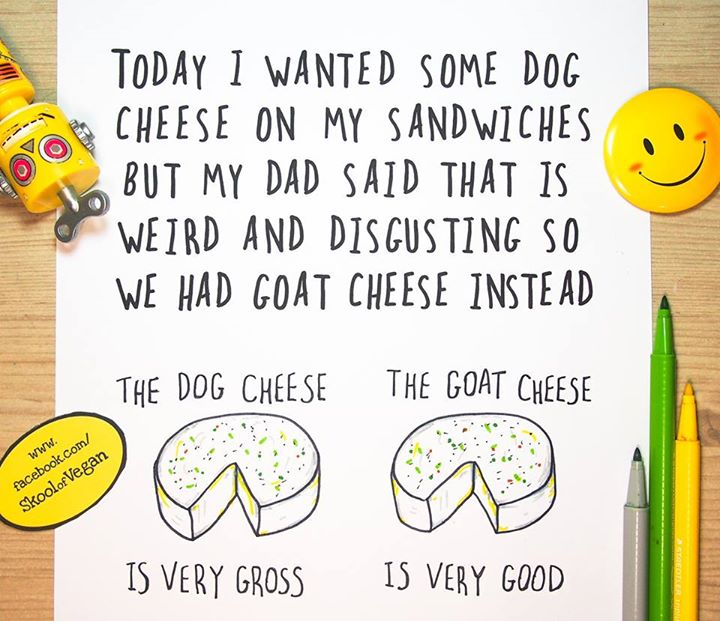 TODAY I WANTED SOME DOG
CHEESE ON MY SANDWICHES
BUT MY DAD SAID THAT IS
WEIRD AND DISGUSTING SO
WE HAD GOAT CHEESE INSTEAD
THE DOG CHEESE
IS VERY GROSS
THE GOAT CHEESE
IS VERY GOOD
www.
facebook.com/
SkoolofVegan
STAEDTLER